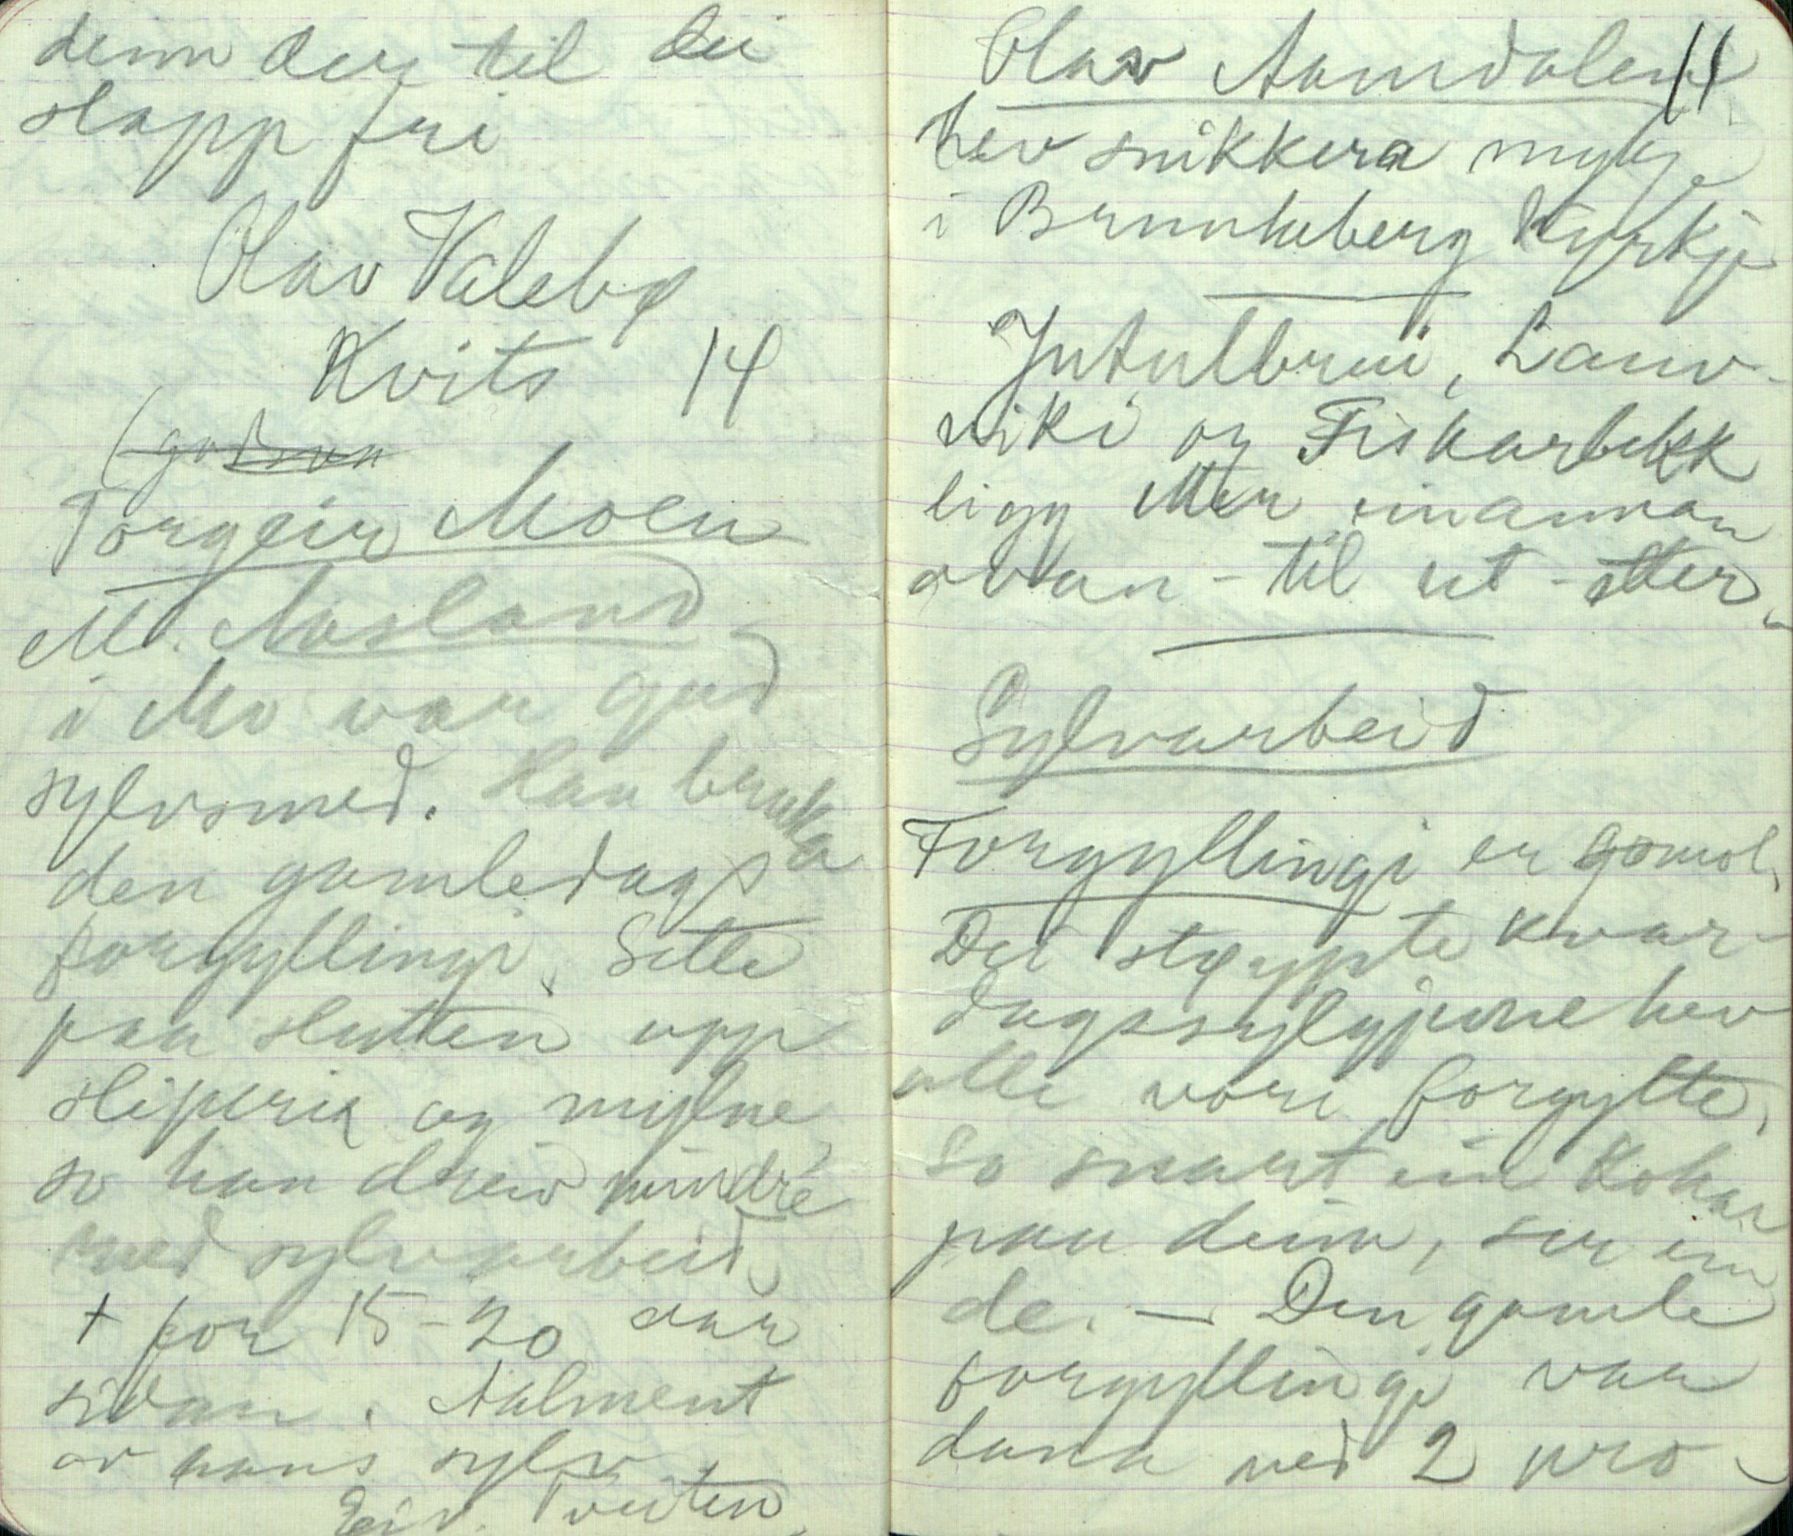 deim der til dei
slapp fri
Olav Valebø
Kvits 14
(godson
Torgeir Moen
M. Aasland
i Mo var god
sylvsmed. Han bruka
den gamledagsa
forgyllingi. Sette
paa slutten upp
sliperia og mylne,
so han dreiv mindre
med sylvarbeid.
+ for 15-20 aar
sidan. Aalment
av hans sylv
Eiv. Tveiten.
Olav Aamdalen 11
hev snikkera mykje
i Brunkeberg Kyrkje
Jutulbrui, Lauv-
viki og Fiskarbekk
ligg etter einannan
ovan-til ut-etter.
Sylvarbeid
Forgyllingi er gomol.
Dei støypte kvar-
dagssylgjune hev
alle vore forgylte,
so snart ein kokar
paa deim, ser ein
de. — Den gamle
forgyllingi var
dana med 2 pro-